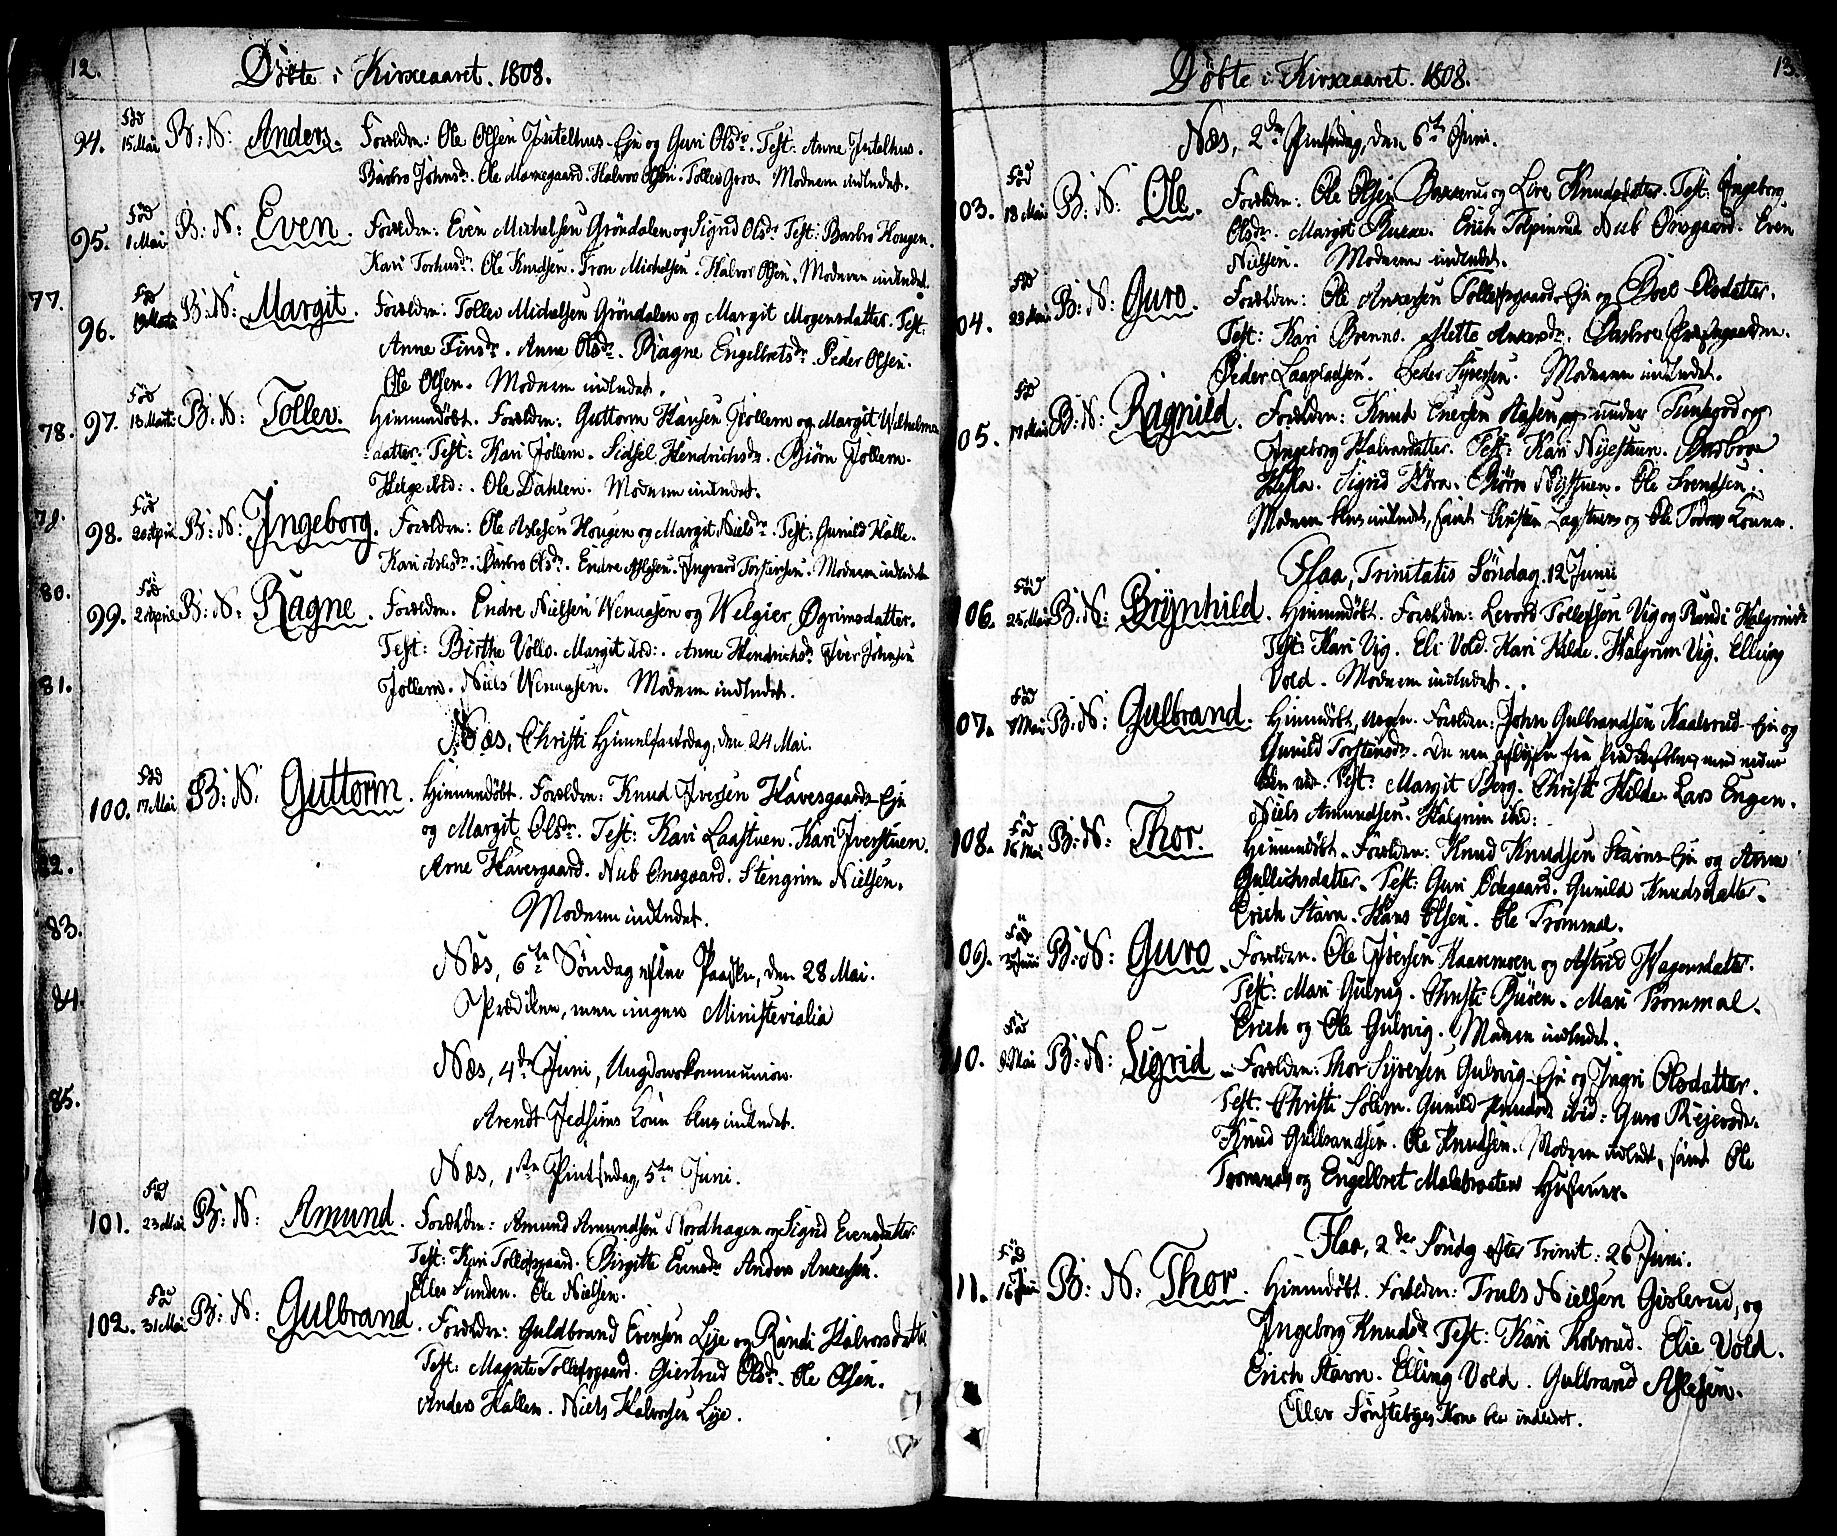 12.
Døbte i Kirkeaaret. 1808.
94. Fød 15 Mai B: N: Anders. Forældre: Ole Olsen Ejn og Guri Olsdr. Test: Anne
Barbro Johnsdr. Ole Halvor Olsen. Tollev Groe. Moderen indledet.
95. Fød 1 Mai B: N: Even. Forældre: Even Michelsen Gröndalen og Sigrid Olsdr. Test: Barbro Hougen.
Kari Ole Knudsen. Tron Michelsen. Halvor Olsen. Moderen indledet.
77.
96. Fød B: N: Margit. Forældre: Tollev Michelsen Gröndalen og Margit Mogensdatter. Test:
Anne Finsdr. Anne Olsdr. Ragne Engelbretsdr. Peder Olsen.
Ole Olsen. Moderen indledet.
78.
97. Fød 13 Martii B: N: Tollev. Hiemmedøbt. Forældre: Guttorm Hansen Jollem og Margit Wilhelms
datter. Test: Kari Jollem. Sidsel Hendrichsdr. Biörn Jollem.
Helge ibid: Ole Dahlen. Moderen indledet.
79.
98. Fød 20 April B: N: Ingeborg. Forældre: Ole Aslesen Hougen og Margit Nielsdr. Test: Gunild Halle.
Kari Aslesdr. Barbro Olsdr. Endre Aslesen. Ingvard Torstensen. Moderen indledet
80.
99. Fød 2 April B: N: Ragne. Forældre. Endre Nielsen Wenaasen og Welgier Øgrimsdatter.
Test: Birthe Vollo. Margit ibid: Anne Hendrichsdr. Iver Johnsen
81.
Jollem. Niels Wenaasen. Moderen indledet.
Næs, Christi Himmelfartsdag, den 24 Mai.
100. Fød 17 Mai B: N: Guttorm. Hiemmedøbt. Forældre: Knud Iversen Haversgaards Ejn
og Margit Olsdr. Test: Kari Laastuen. Kari Iverstuen.
82.
Arne Haversgaard. Nub Onsgaard. Stengrim Nielsen.
Moderen indledet.
83.
Næs, 6te Søndag efter Paaske, den 28 Mai.
84.
Prædiken, men ingen Ministerialia
Næs, 4de Juni, Ungdomskommunion.
85.
Arendt Kone blev indledet.
Næs, 1ste Pintsedag, 5te Juni.
101. Fød 23 Mai B: N: Amund. Forældre: Amund Amundsen Nordhagen og Sigrid Evensdatter.
Test: Kari Tollefsgaard. Birgitte Evensdr. Anders Ankersen.
Eller Sunden. Ole Nielsen.
102. Fød 31 Mai B: N: Gulbrand. Forældre: Guldbrand Evensen Lye og Randi Halvorsdatter
Test: Magnte Tollefsgaard. Giertrud Olsdr. Ole Olsen.
Anders Hallen. Niels Halvorsen Lye.
13.
Døbte i Kirkeaaret. 1808.
Næs, 2den Pintsedag, den 6te Juni.
03. Fød 18 Mai B: N: Ole. Forældre: Ole Olsen og Live Knudsdatter. Test: Ingeborg
Olsdr. Margit Erich Tolpinrud Nub Onsgaard. Even
Nielsen. Moderen indledet.
04. Fød 23 Mai B: N: Guro. Forældre: Ole Ankersen Tollefsgaards Ejn og Olsdatter.
Test: Kari Brenno. Mette Ankersdr. Barbro
Peder Peder Syversen. Moderen indledet.
05. Fød 17 Mai B: N: Ragnild. Forældre: Knud under og
Ingeborg Halvorsdatter. Test: Kari Nyestuen. Barbroe
Hesla. Sigrid Biörn Nystuen. Ole Svendsen.
Moderen blev indledet, samt Christen Lagstuens og Ole Koner.
Flaa, Trinitatis Söndag. 12 Juni
106. Fød 25 Mai B: N: Brynhild. Hiemmedøbt. Forældre: Levord Tollefsen Vig og Randi Halgrimsdr
Test: Kari Vig. Eli Vold. Kari Hilde. Halgrim Vig. Elling
Vold. Moderen indledet.
07. Fød Mai B: N: Gulbrand. Hiemmedøbt, Forældre: John Gulbrandsen Kaalsrud Ejn og
Gunild Torstensdr.
Test: Margit Berg. Christi Hilde. Lars Engen.
Niels Amundsen. Halgrim ibid:
108. Fød 16 Mai B: N: Thor. Hiemmedøbt. Forældre: Knud Knudsen Stavns Ejn og Anne
Gullichsdatter. Test: Guri Ødegaard. Gunild Knudsdatter.
Erich Stavn. Hans Olsen. Ole Trommal.
109. Fød Juni B: N: Guro. Forældre. Ole Iversen Kaavemoen og Astrid Hagensdatter.
Test: Mari Gulsvig. Christi Buöen. Mari Trommal.
Erich og Ole Gulsvig. Moderen indledet.
10. Fød Mai B: N: Sigrid. Forældre: Thor Syversen Gulsvig Ejn og Ingri Olsdatter.
Test: Christi Solem. Gunild Knudsdr ibid: Guro Rejersdr.
Knud Gulbrandsen. Ole Knudsen. Moderen indledt, samt Ole
Trommals og Engelbret Malebraatens Hustruer.
Flaa, 2den Söndg efter Trinit: 26 Juni.
11. Fød 16 Juni B: N: Thor. Hiemmedøbt. Forældre: Truls Nielsen Gislerud, og
Ingeborg Knudsdr. Test: Kari Kolsrud. Elie Vold.
Erich Stavn. Elling Vold. Gulbrand Aslesen.
Eller Sönstebyes Kone blev indledet.